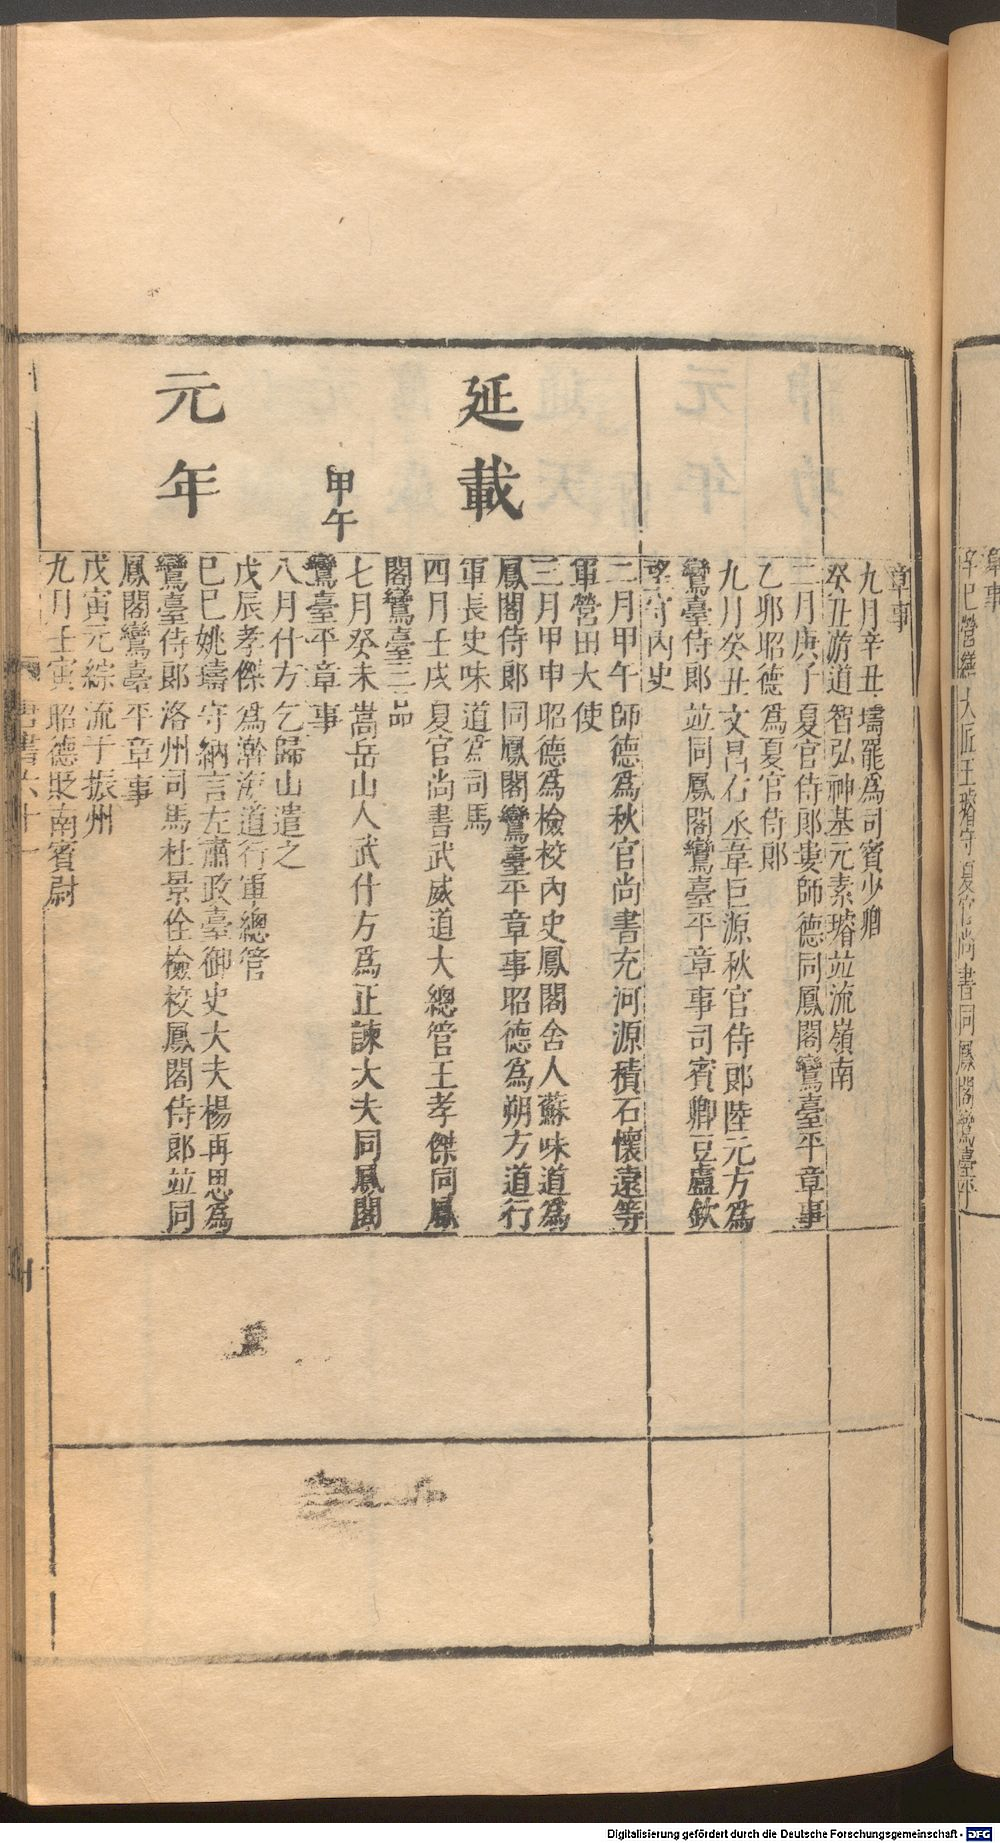 章事
九月辛丑璹罷為司賓少卿
癸丑游道智弘神基元素璿竝流嶺南
二月庚子夏官侍郎婁師德同鳳閣鸞臺平章事
乙卯昭德為夏官侍郎
九月癸丑文昌右丞韋巨源秋官侍郎陸元方為
鸞臺侍郎竝同鳳閣鸞臺平章事司賓卿豆盧欽
望守內史
延載
元年
甲午
二月甲午師德為秋官尚書充河源積石懷遠等
軍營田大使
三月甲申昭德為檢校內史鳳閣舍人蘇味道為
鳳閣侍郎同鳳閣鸞臺平章事昭德為朔方道行
軍長史味道為司馬
四月壬戌夏官尚書武威道大總管王孝傑同鳳
閣鸞臺三品
七月癸未嵩岳山人武什方為正諫大夫同鳳閣
鸞臺平章事
八月什方乞歸山遣之
戊辰孝傑為瀚海道行軍總管
巳巳姚璹守納言左肅政臺御史大夫楊再思為
鸞臺侍郎洛州司馬杜景佺檢校鳳閣侍郎竝同
鳳閣鸞臺平章事
戊寅元綜流于振州
九月壬寅昭德貶南賓尉
唐書六十一
章事
辛巳營繕大匠王璿守夏官尚書同鳳閣鸞臺平
Digitalisierung gefördert durch die Deutsche Forschungsgemeinschaft - DFG